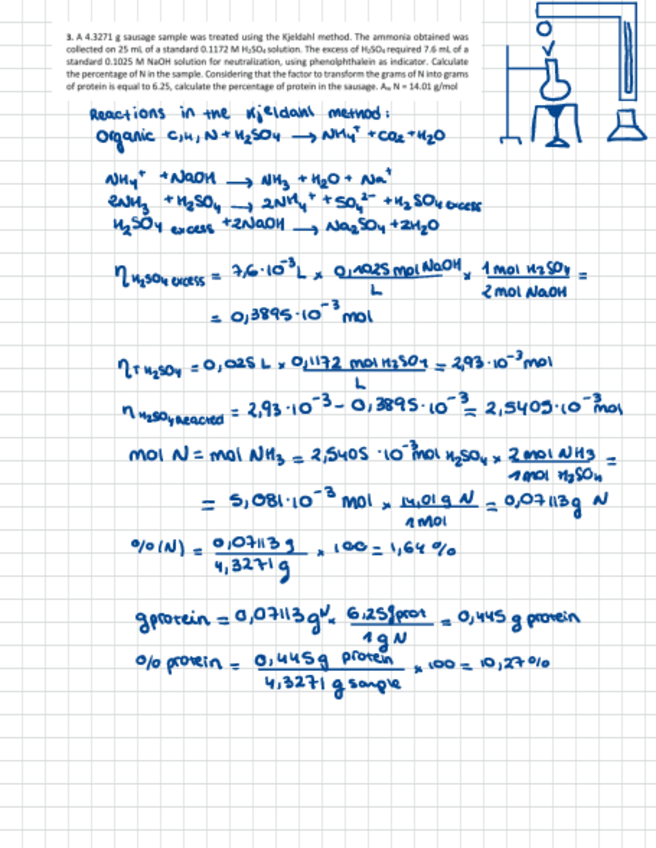 3. A 4.3271 g sausage sample was treated using the Kjeldahl method. The ammonia obtained was
collected on 25 mL of a standard 0.1172 M H₂SO₄ solution. The excess of H₂SO₄ required 7.6 mL of a
standard 0.1025 M NaOH solution for neutralization, using phenolphthalein as indicator. Calculate
the percentage of N in the sample. Considering that the factor to transform the grams of N into grams
of protein is equal to 6.25, calculate the percentage of protein in the sausage. Aᵣ, N = 14.01 g/mol
Reactions in the Kjeldahl method:
Organic C,H,N + H₂SO₄ → NH₄⁺ + CO₂ + H₂O
NH₄⁺ + NaOH → NH₃ + H₂O + Na⁺
2NH₃ + H₂SO₄ → 2NH₄⁺ + SO₄²⁻ + H₂SO₄ excess
H₂SO₄ excess + 2NaOH → Na₂SO₄ + 2H₂O
n H₂SO₄ excess = 7,6·10⁻³ L × 0,1025 mol NaOH / L × 1 mol H₂SO₄ / 2 mol NaOH =
= 0,3895·10⁻³ mol
n T H₂SO₄ = 0,025 L × 0,1172 mol H₂SO₄ / L = 2,93·10⁻³ mol
n H₂SO₄ reacted = 2,93·10⁻³ - 0,3895·10⁻³ = 2,5405·10⁻³ mol
mol N = mol NH₃ = 2,5405·10⁻³ mol H₂SO₄ × 2 mol NH₃ / 1 mol H₂SO₄ =
= 5,081·10⁻³ mol × 14,01 g N / 1 mol = 0,07113 g N
%(N) = 0,07113 g / 4,3271 g × 100 = 1,64 %
g protein = 0,07113 g N × 6,25 g prot / 1 g N = 0,445 g protein
% protein = 0,445 g protein / 4,3271 g sample × 100 = 10,27 %